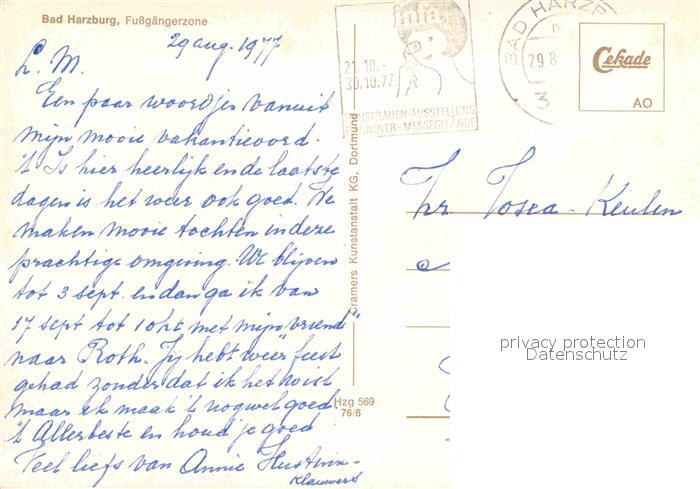 Bad Harzburg, Fußgängerzone
29 aug. 1977
L. M.
Een paar woordjes vanuit
mijn mooie vakantieoord.
't Is hier heerlijk en de laatste
dagen is het weer ook goed. We
maken mooie tochten in deze
prachtige omgeving. We blijven
tot 3 sept. en dan ga ik van
17 sept tot 1 okt met mijn "vriend"
naar Roth. Jij hebt weer feest
gehad zonder dat ik het wist
maar ik maak 't nog wel goed.
't Allerbeste en houd je goed
Veel liefs van Annie
infa
21.10.-
30.10.77
HAUSFRAUEN-AUSSTELLUNG
HANNOVER-MESSEGELÄNDE
BAD HARZB
29.8
3
Cekade
AO
Cramers Kunstanstalt KG, Dortmund
Hzg 569
76/6
Keulen
privacy protection
Datenschutz